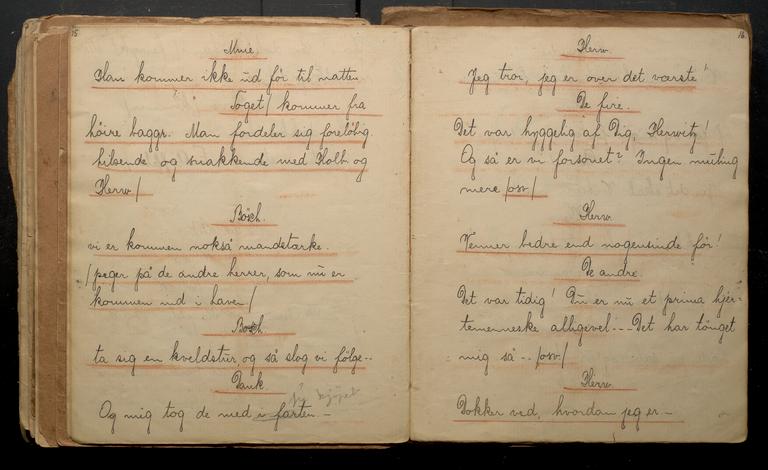 15.
Mine.
Han kommer ikke ud før til natten
Toget / kommer fra
høire baggr. Man fordeler sig foreløbig
hilsende og snakkende med Holt og
Herw /
Bosch.
vi er kommen nokså mandstærke.
/ peger på de andre herrer, som nu er
kommen ind i haven /
Bosch.
ta sig en kveldstur, og så slog vi følge..
Dank
Og mig tog de med i farten –
16.
Herw.
Jeg tror, jeg er over det værste!
De fire.
Det var hyggelig af Dig, Herwitz!
Og så er vi forsonet? Ingen muling
mere /osv/
Herw.
Venner bedre end nogensinde før!
De andre.
Det var tidig! Du er nu et prima hjer-
temenneske alligevel --- Det har tønget
mig så -- /osv/
Herw.
Dokker ved, hvordan jeg er –